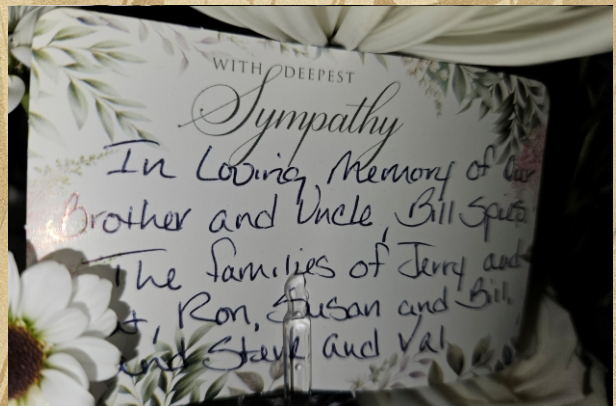 WITH DEEPEST
Sympathy
In Loving Memory of Our
Brother and Uncle, Bill
The families of Jerry and
Ron, Susan and Bill,
and Steve and Val